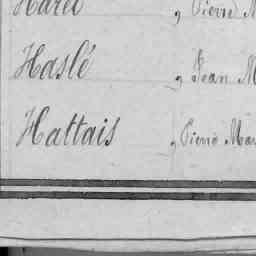 Harel , Pierre M
Haslé , Jean M
Hattais , Pierre Mar